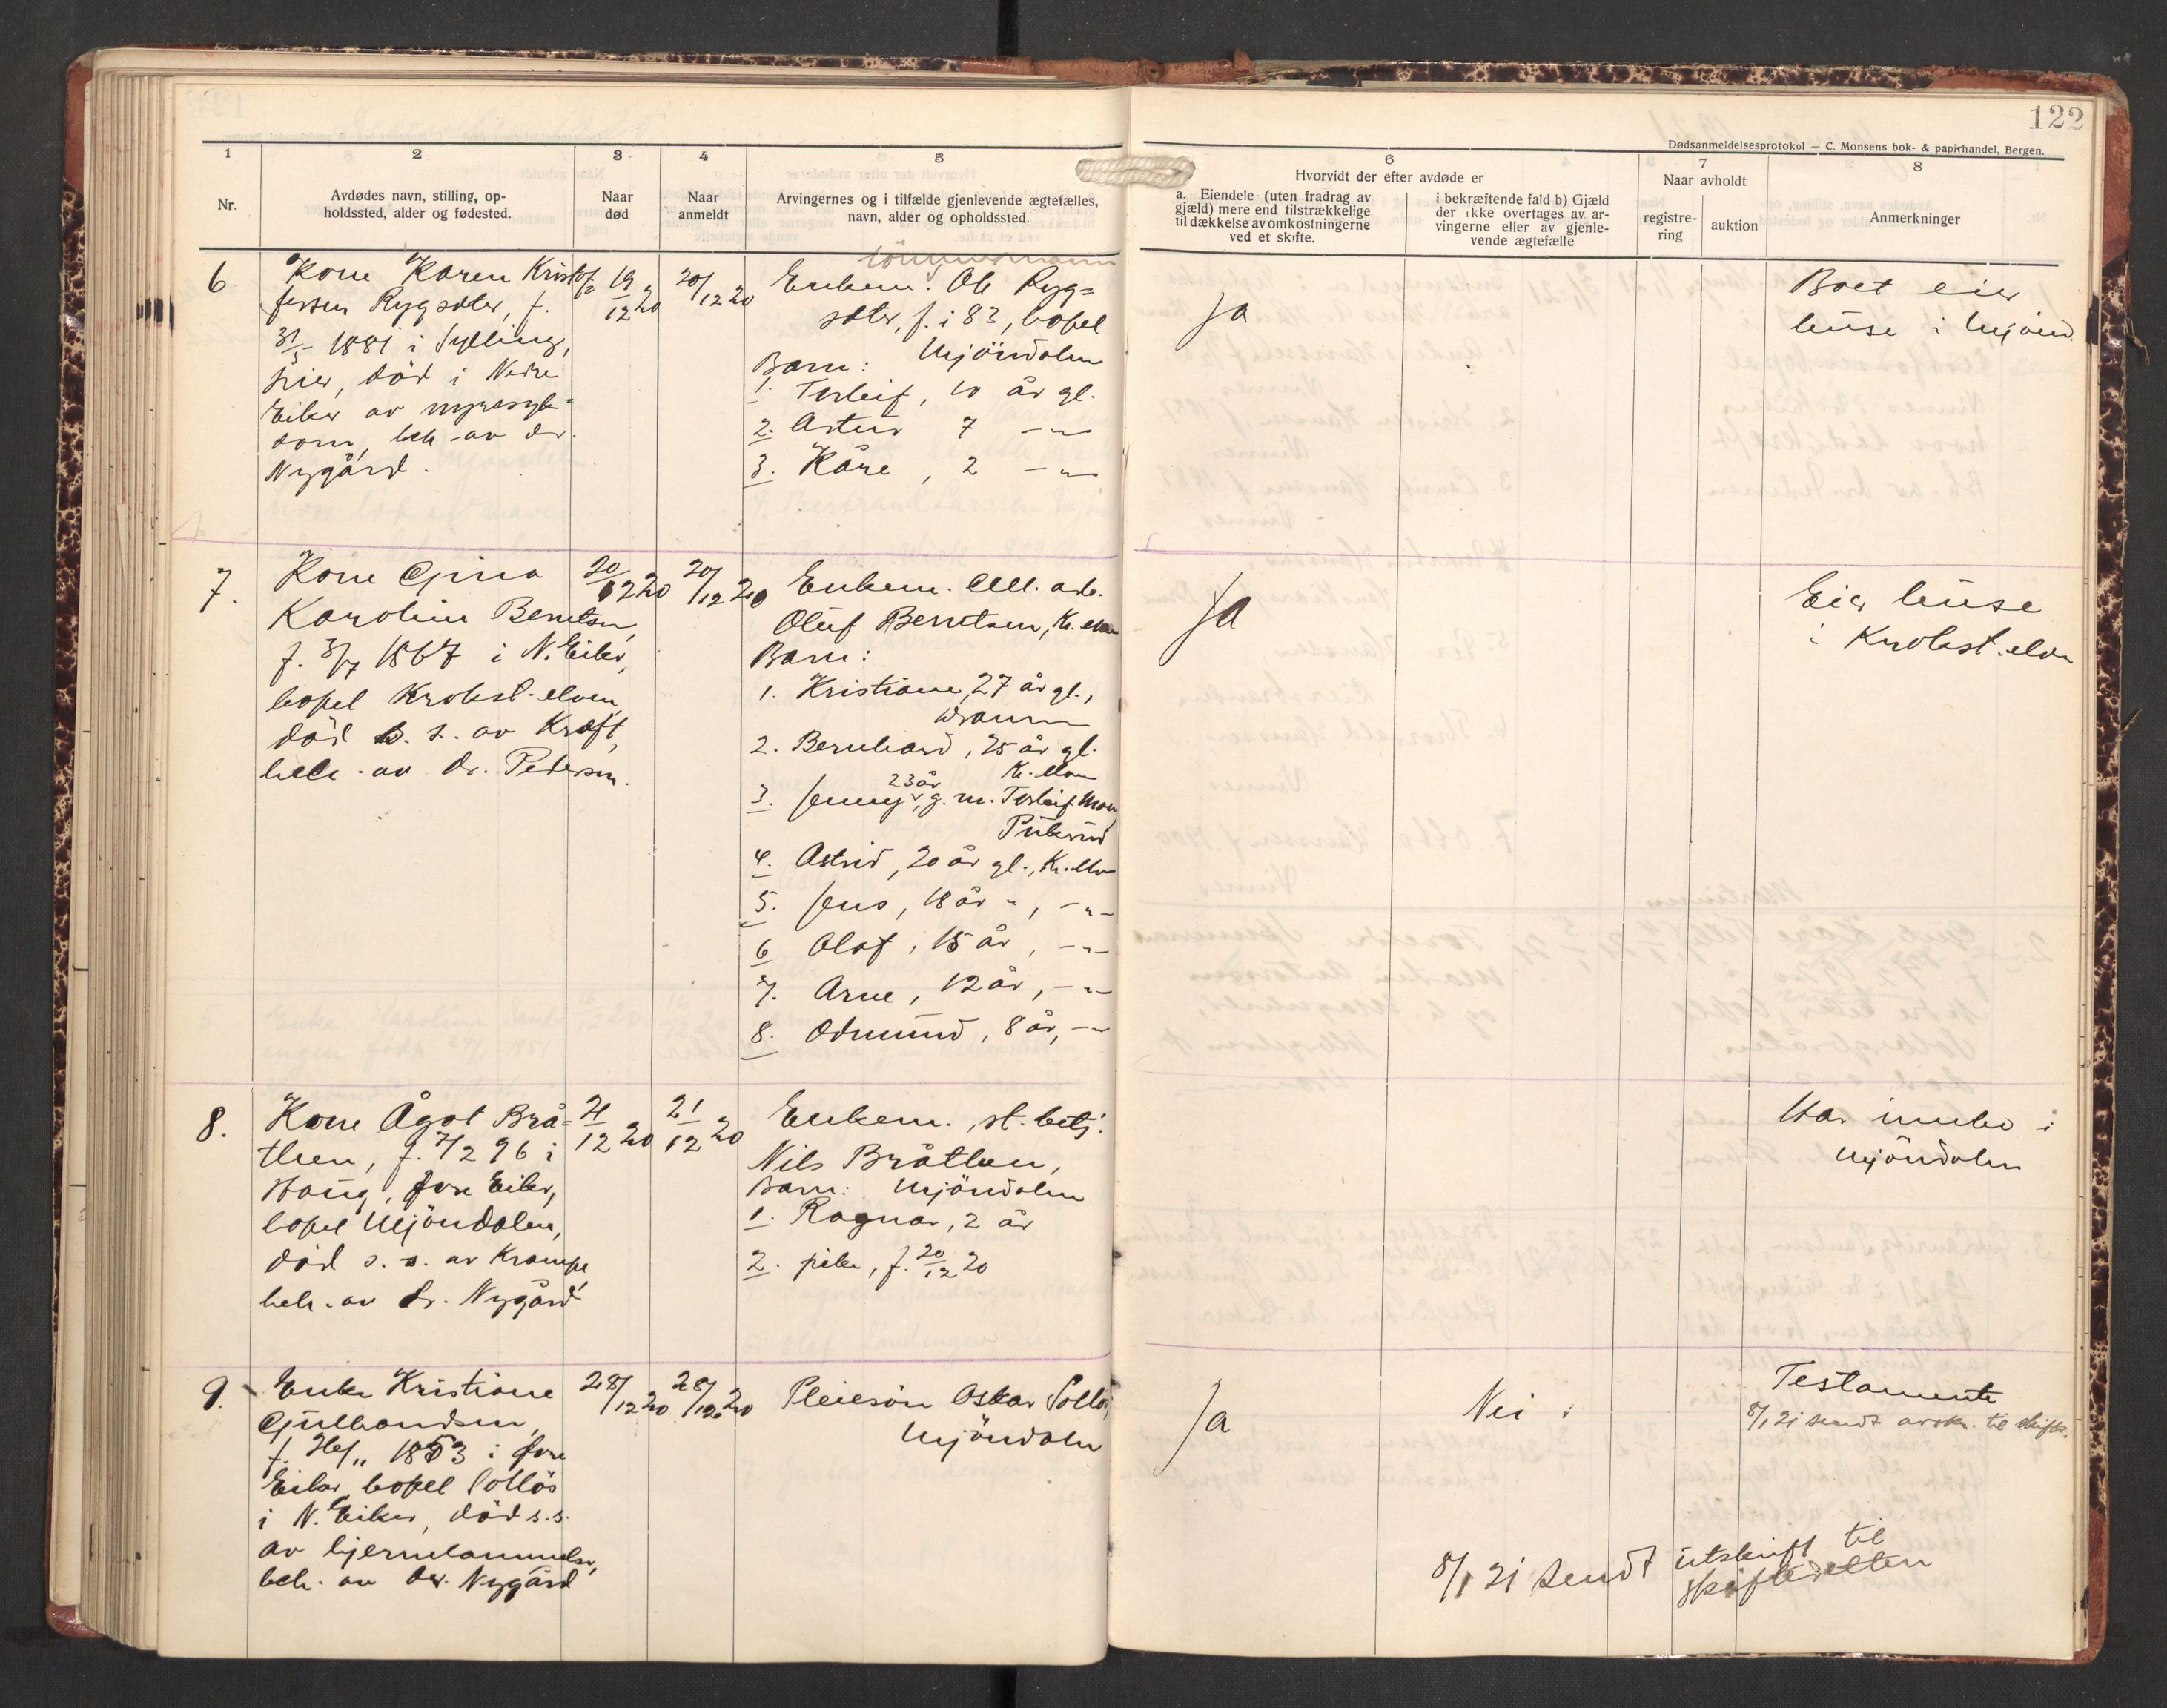 122
Dødsanmeldelsesprotokol — C. Monsens bok- & papirhandel, Bergen.
1
Nr.
2
Avdødes navn, stilling, op-
holdssted, alder og fødested.
3
Naar
død
4
Naar
anmeldt
5
Arvingernes og i tilfælde gjenlevende ægtefælles,
navn, alder og opholdssted.
6
Hvorvidt der efter avdøde er
a. Eiendele (uten fradrag av
gjæld) mere end tilstrækkelige
til dækkelse av omkostningerne
ved et skifte.
i bekræftende fald b) Gjæld
der ikke overtages av ar-
vingerne eller av gjenle-
vende ægtefælle
7
Naar avholdt
registre-
ring
auktion
8
Anmerkninger
6
Kone Karen Kristof=
fersen Rygsæter, f.
31/5 1881 i Sylling,
Lier, död i Nedre
Eiker av nyresyk=
dom, beh. av dr.
Nygård.
19/12 20
20/12 20
tömmermann
Enkem. Ole Ryg=
sæter, f. i 83, bopel
Mjöndalen
Barn:
1. Torleif, 10 år gl.
2. Artur 7 -"-
3. Kåre, 2 -"-
Ja
Boet eier
huse i Mjönd.
7.
Kone Gina
Karoline Berntsen,
f. 3/7 1867 i N. Eiker,
bopel Krokst.elven,
död s. s. av Kræft,
beh. av dr. Pedersen.
20/12 20
20/12 20
Enkem. Cell. arb.
Oluf Berntsen, Kr. elven
Barn:
1. Kristiane, 27 år gl.,
Drammen
2. Bernhard, 25 år gl.
Kr. elven
3. Jenny, 23 år g. m. Torleif Moen,
Pukerud
4. Astrid, 20 år gl., Kr. elven
5. Jens, 18 år ", -"-
6 Olaf, 15 år, -"-
7. Arne, 12 år, -"-
8. Odmund, 8 år, -"-
Ja
Eier huse
i Krokst.elven
8.
Kone Ågot Brå=
then, f. 7/2 96 i
Haug, Övre Eiker,
bopel Mjöndalen,
död s. s. av Krampe,
beh. av dr. Nygård
21/12 20
21/12 20
Enkem., st. betj.
Nils Bråthen,
Barn: Mjöndalen
1. Ragnar, 2 år
2. pike, f. 20/12 20
Har innbo i
Mjöndalen
9.
Enke Kristiane
Gulbrandsen,
1853 i Övre
Eiker, bopel Solløs
i N. Eiker, död s. s.
av hjernelammelse,
beh. av dr. Nygård
28/12 20
28/12 20
Pleiesön Oskar Solløs,
Mjöndalen
Ja
Nei
Testamente
8/1 21 sendt avskr. til skifter.
8/1 21 sendt utskrift til
skifteretten